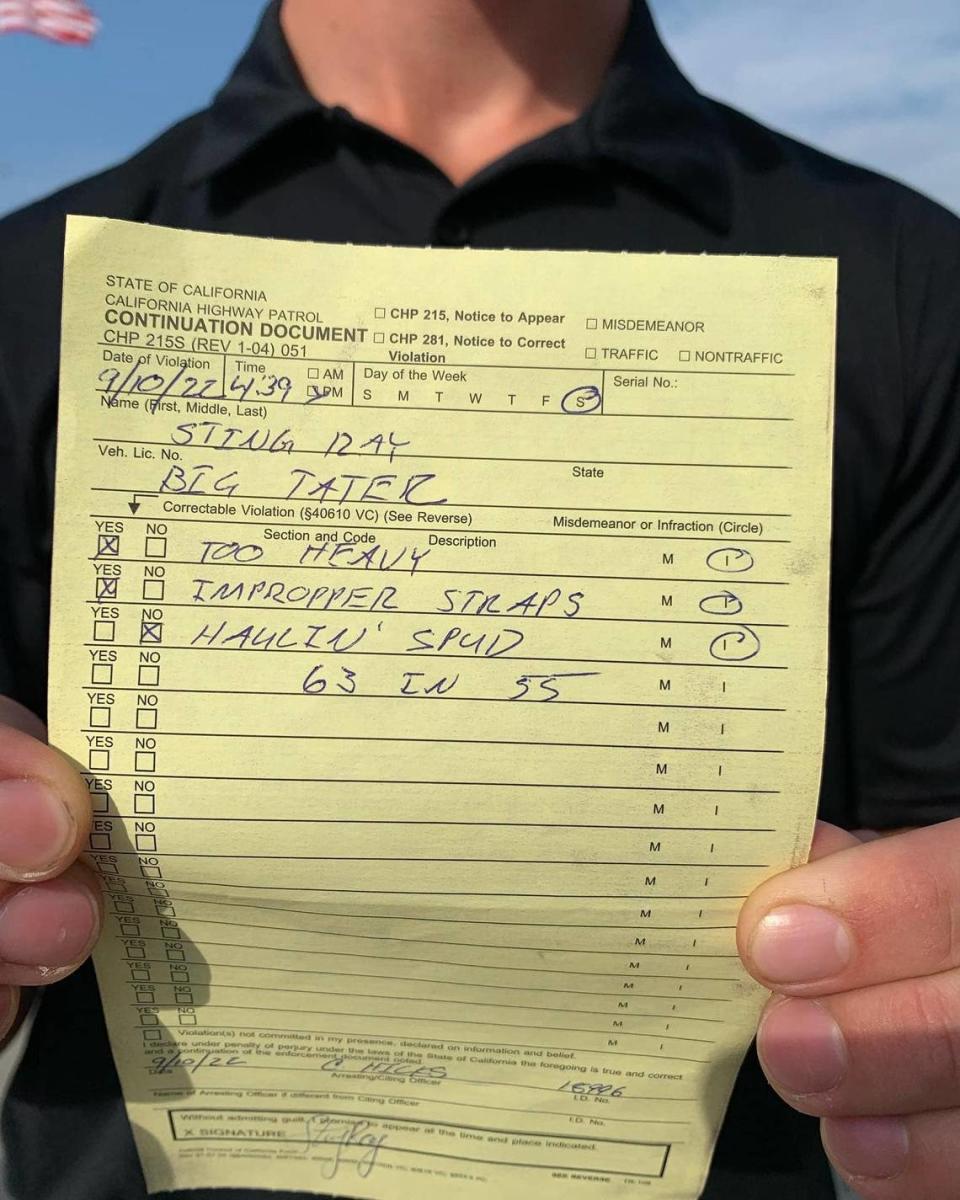 STATE OF CALIFORNIA
CALIFORNIA HIGHWAY PATROL
CONTINUATION DOCUMENT
CHP 215S (REV 1-04) 051
☐ CHP 215, Notice to Appear
☐ CHP 281, Notice to Correct
Violation
☐ MISDEMEANOR
☐ TRAFFIC ☐ NONTRAFFIC
Date of Violation Time ☐ AM Day of the Week Serial No.:
9/10/22 4:39 PM S M T W T F S
Name (First, Middle, Last)
STING RAY
Veh. Lic. No. State
BIG TATER
Correctable Violation (§40610 VC) (See Reverse) Misdemeanor or Infraction (Circle)
YES NO Section and Code Description
TOO HEAVY M I
YES NO
IMPROPPER STRAPS M I
YES NO
HAULIN' SPUD M I
YES NO
63 IN 55 M I
YES NO
M I
YES NO
M I
YES NO
M I
YES NO
M I
YES NO
M I
YES NO
M I
YES NO
M I
YES NO
M I
YES NO
M I
YES NO
M I
YES NO
M I
☐ Violation(s) not committed in my presence, declared on information and belief.
M I
I declare under penalty of perjury under the laws of the State of California the foregoing is true and correct
and a continuation of the enforcement document noted.
9/10/22
Date Arresting/Citing Officer I.D. No.
Name of Arresting Officer if different from Citing Officer I.D. No.
Without admitting guilt, I promise to appear at the time and place indicated.
X SIGNATURE StingRay
SEE REVERSE